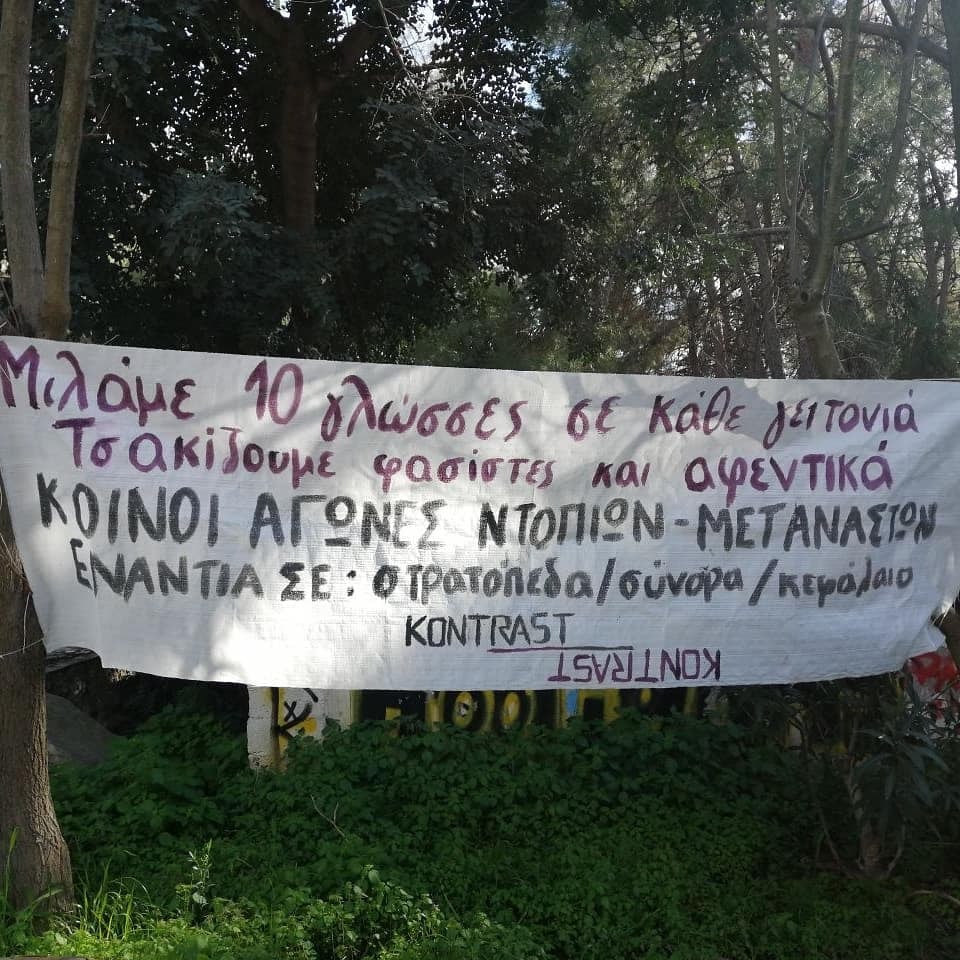 Μιλάμε 10 γλώσσες σε κάθε γειτονιά
Τσακίζουμε φασίστες και αφεντικά
ΚΟΙΝΟΙ ΑΓΩΝΕΣ ΝΤΟΠΙΩΝ - ΜΕΤΑΝΑΣΤΩΝ
ΕΝΑΝΤΙΑ ΣΕ: στρατόπεδα/σύνορα/κεφάλαιο
KONTRAST
KONTRAST